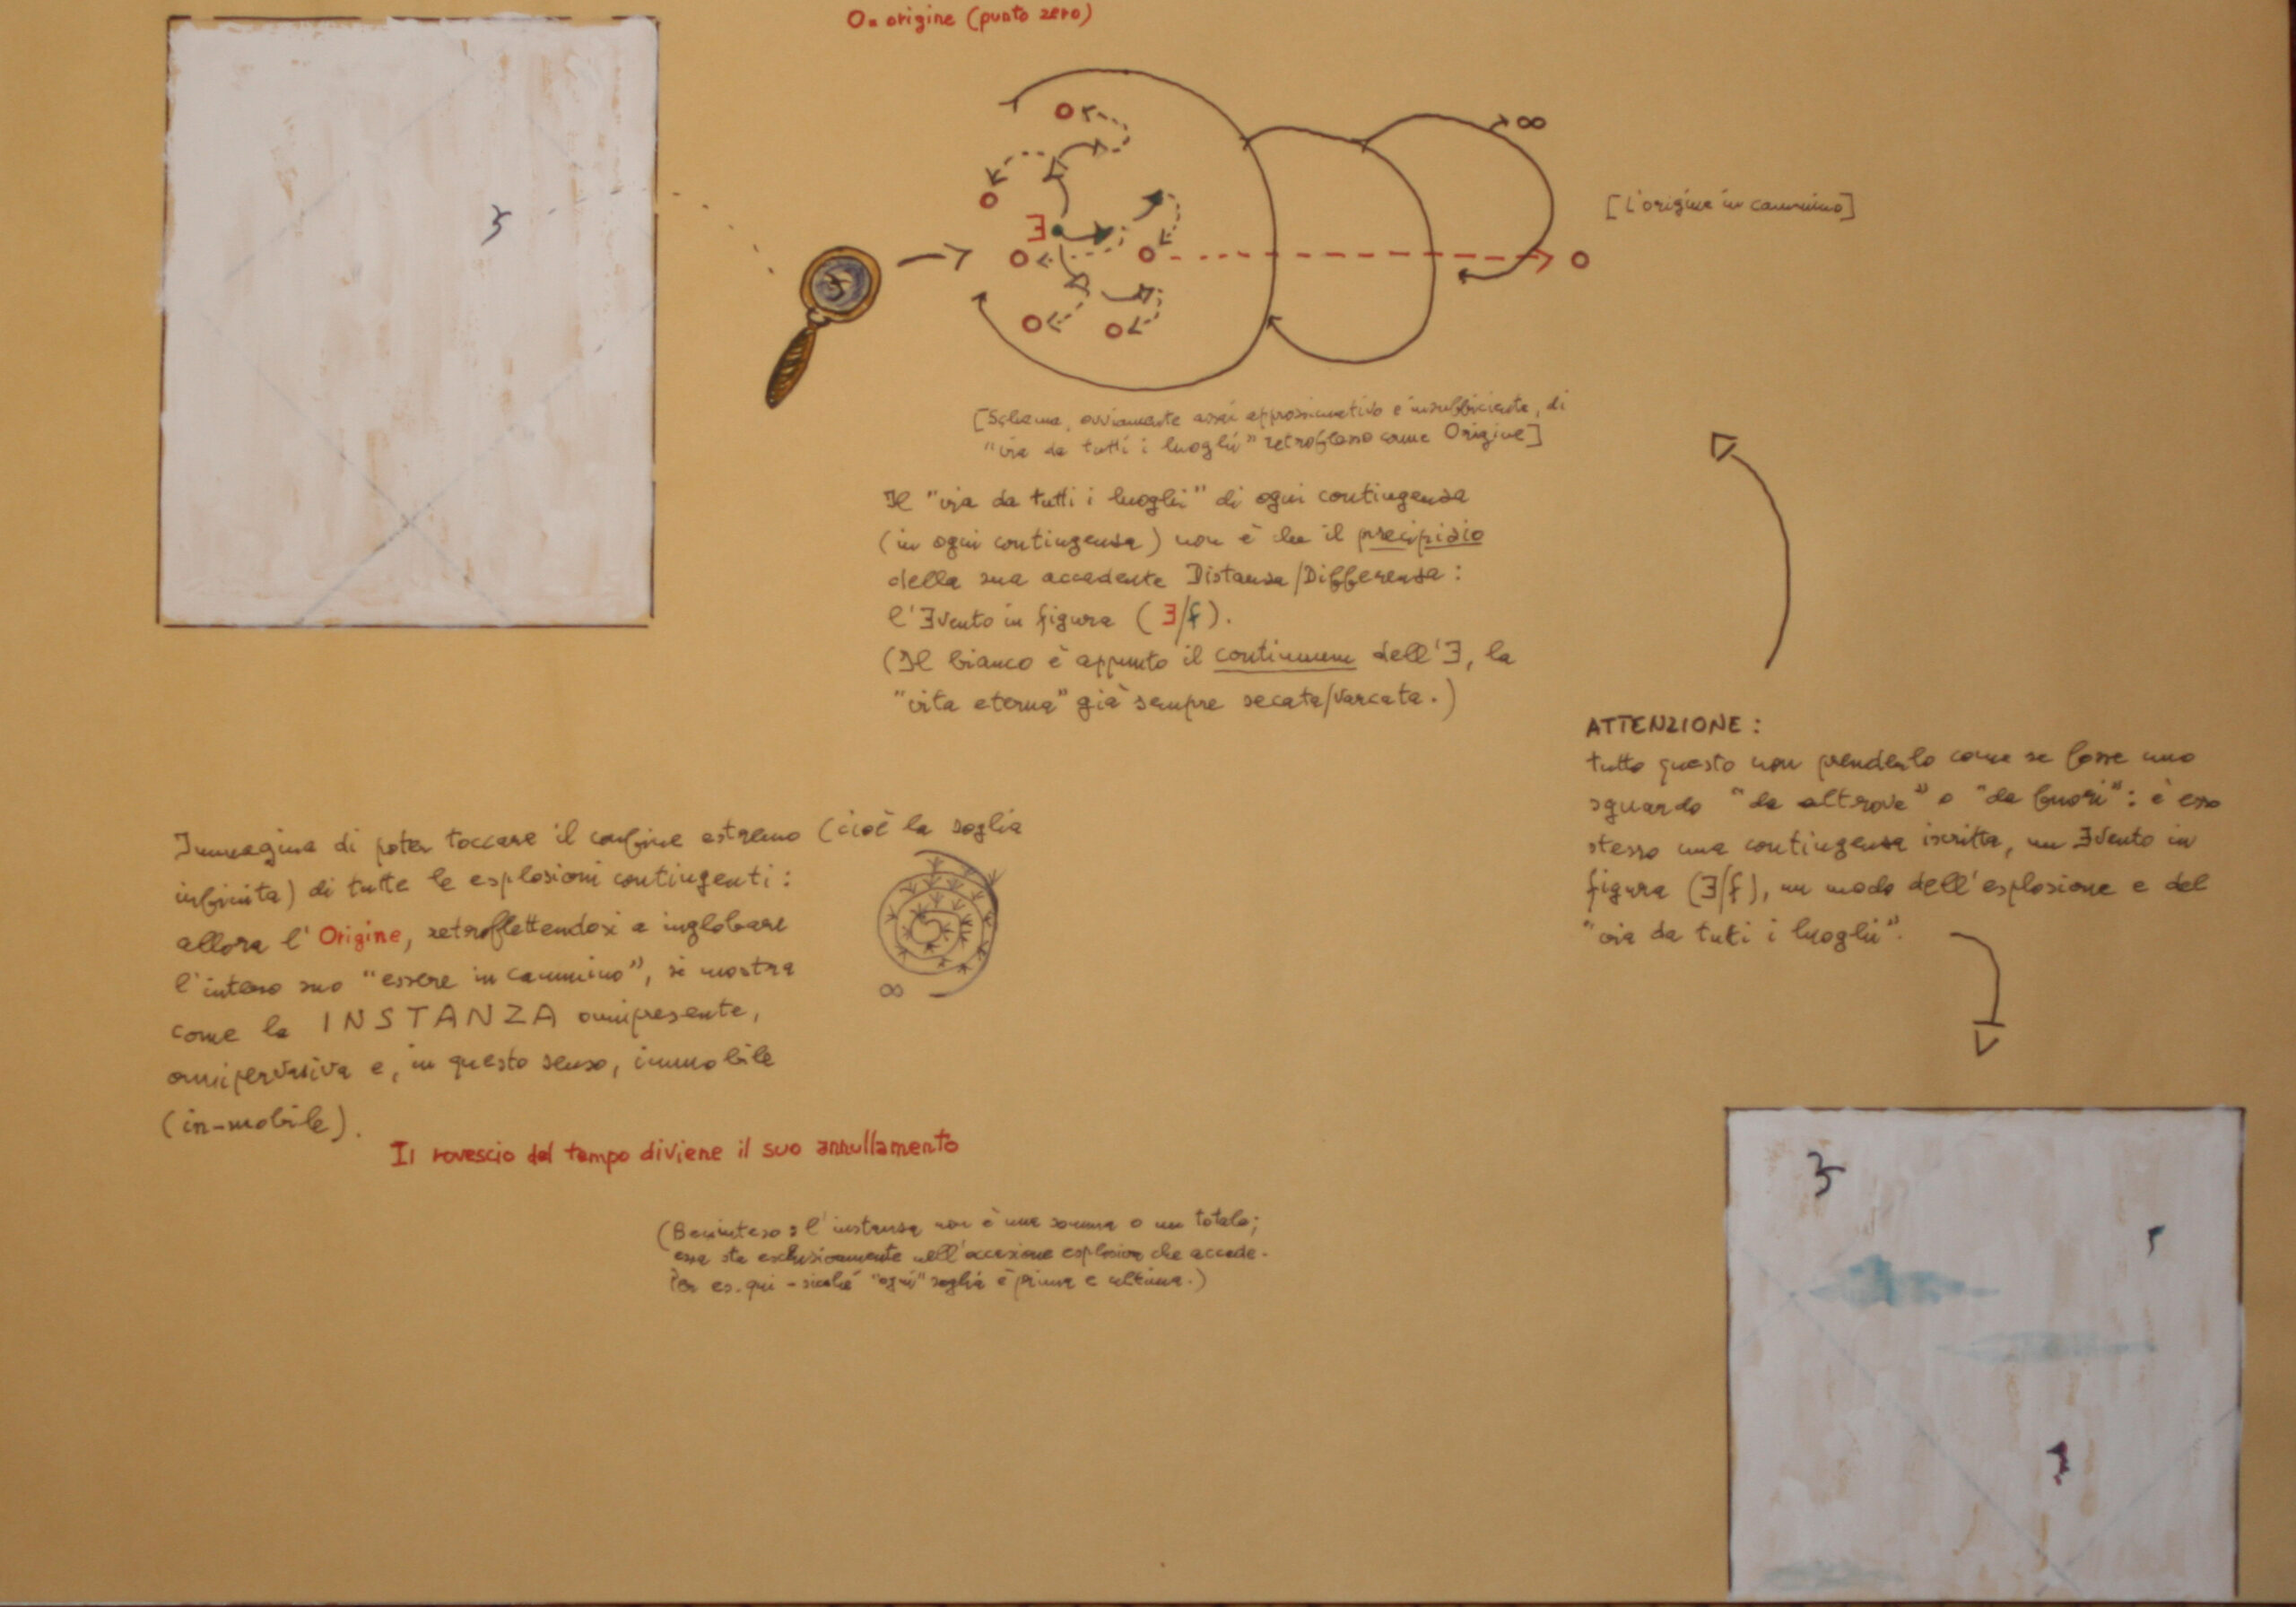 O = origine (punto zero)
∞
[L'origine in cammino]
Ǝ
[Schema, ovviamente assai approssimativo e insufficiente, di
"via da tutti i luoghi" retroflesso come Origine]
Il "via da tutti i luoghi" di ogni contingenza
(in ogni contingenza) non è che il precipizio
della sua accadente Distanza/Differenza:
l'Ǝvento in figura (Ǝ/f).
(Il bianco è appunto il continuum dell'Ǝ, la
"vita eterna" già sempre secata/varcata.)
ATTENZIONE:
tutto questo non prenderlo come se fosse uno
sguardo "da altrove" o "da fuori": è esso
stesso una contingenza iscritta, un Ǝvento in
figura (Ǝ/f), un modo dell'esplosione e del
"via da tutti i luoghi".
Immagina di poter toccare il confine estremo (cioè la soglia
infinita) di tutte le esplosioni contingenti:
allora l'Origine, retroflettendosi a inglobare
l'intero suo "essere in cammino", si mostra
come la INSTANZA onnipresente,
onnipervasiva e, in questo senso, immobile
(in-mobile).
∞
Il rovescio del tempo diviene il suo annullamento
(Beninteso: l'instanza non è una somma o un totale;
essa sta esclusivamente nell'accezione esplosiva che accade.
Per es. qui - sicché "ogni" soglia è prima e ultima.)